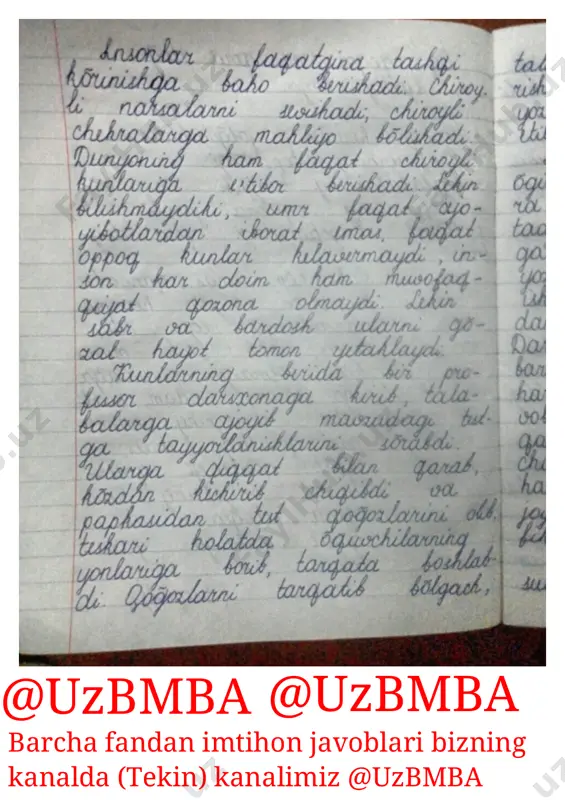 Insonlar faqatgina tashqi
kōrinishga baho berishadi. Chiroy-
li narsalarni sevishadi, chiroyli
chehralarga mahliyo bōlishadi.
Dunyoning ham faqat chiroyli
kunlariga e'tibor berishadi. Lekin
bilishmaydiki, umr faqat ajo-
yibotlardan iborat emas, faqat
oppoq kunlar kelavermaydi, in-
son har doim ham muvofaq-
qiyat qozona olmaydi. Lekin
sabr va bardosh ularni gō-
zal hayot tomon yetaklaydi.
Kunlarning birida bir pro-
fissor darsxonaga kirib, tala-
balarga ajoyib mavzudagi test-
ga tayyorlanishlarini sōrabdi.
Ularga diqqat bilan qarab,
kōzdan kechirib chiqibdi va
papkasidan test qoğozlarini olb,
teskari holatda ōquvchilarning
yonlariga borib, tarqata boshlab-
di. Qoğozlarni tarqatib bōlgach,
@UzBMBA @UzBMBA
Barcha fandan imtihon javoblari bizning
kanalda (Tekin) kanalimiz @UzBMBA